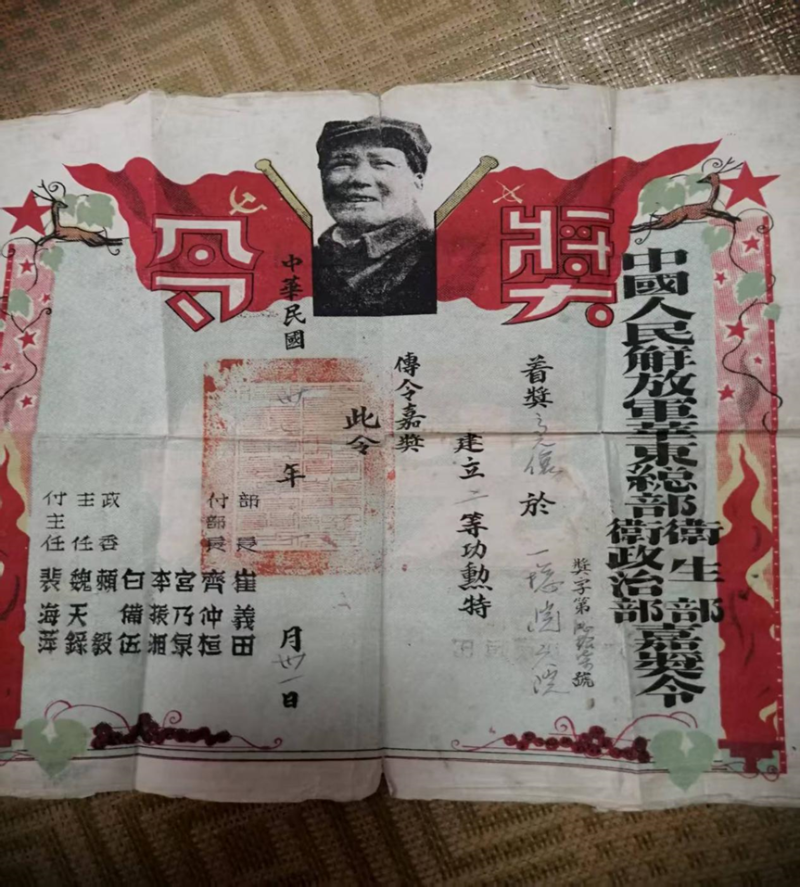 獎令
中國人民解放軍華東總部衛生部
衛政治部嘉獎令
獎字第 號
着獎 於一 院
建立二等功勲特
傳令嘉獎
此令
中華民國 卅 年 月卅一日
部長 崔義田
付部長 齊仲桓
宮乃泉
李振湘
白備伍
政委 賴毅
主任 魏天祿
付主任 裴海萍